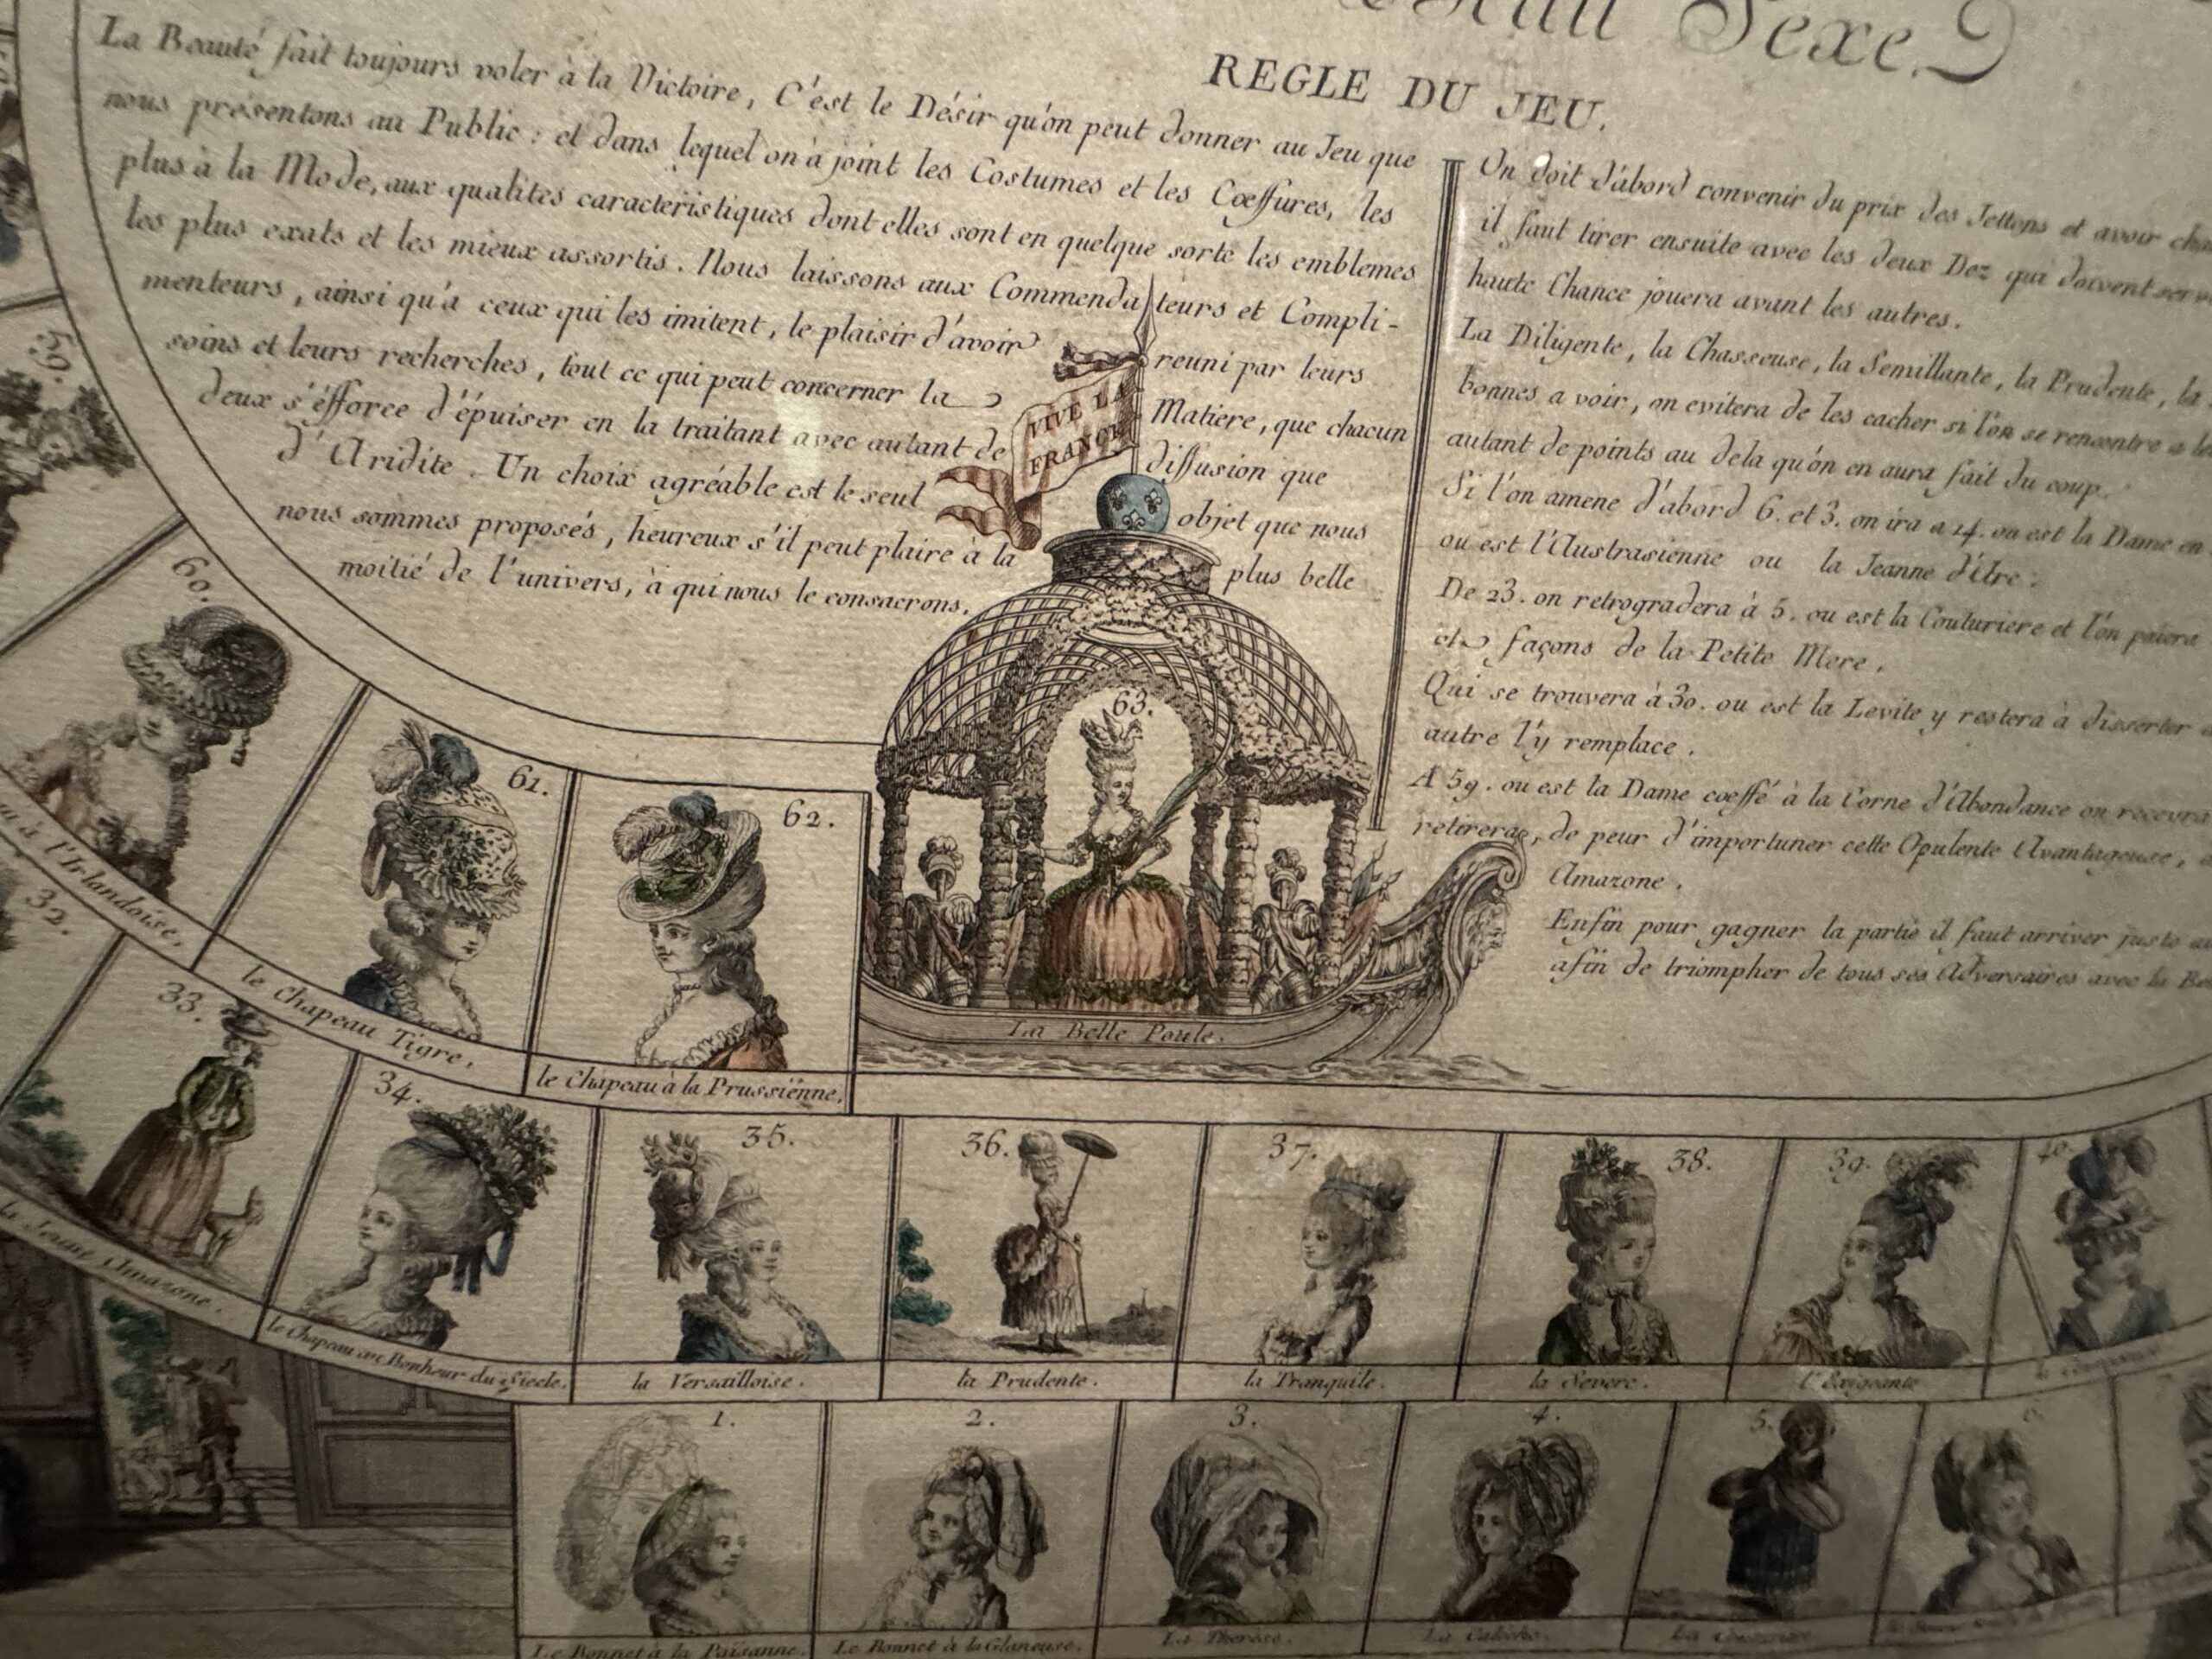 Sexe.
REGLE DU JEU.
La Beauté fait toujours voler à la Victoire, C'est le Désir qu'on peut donner au Jeu que
nous présentons au Public : et dans lequel on a joint les Costumes et les Coeffures, les
plus à la Mode, aux qualites caracteristiques dont elles sont en quelque sorte les emblemes
les plus exats et les mieux assortis. Nous laissons aux Commendateurs et Compli-
menteurs, ainsi qu'a ceux qui les imitent, le plaisir d'avoir reuni par leurs
soins et leurs recherches, tout ce qui peut concerner la Matiere, que chacun
deux s'éfforce d'épuiser en la traitant avec autant de diffusion que
d'Aridite. Un choix agréable est le seul objet que nous
nous sommes proposés, heureux s'il peut plaire à la plus belle
moitié de l'univers, à qui nous le consacrons.
On doit d'abord convenir du prix des Jettons et avoir
il faut tirer ensuite avec les deux Dez qui doivent
haute Chance jouera avant les autres.
La Diligente, la Chasseuse, la Semillante, la Prudente, la
bonnes a voir, on evitera de les cacher si l'on se rencontre a
autant de points au dela qu'on en aura fait du coup.
Si l'on amene d'abord 6. et 3. on ira a 14. ou est la Dame en
ou est l'Austrasienne ou la Jeanne d'Arc.
De 23. on retrogradera à 5. ou est la Couturiere et l'on paiera
et façons de la Petite Mere.
Qui se trouvera à 30. ou est la Levite y restera à disserter
autre l'y remplace.
A 59. ou est la Dame coeffé à la Corne d'Abondance on recevra
retirera, de peur d'importuner cette Opulente Avantageuse,
Amazone.
Enfin pour gagner la partie il faut arriver juste
afin de triompher de tous ses Adversaires avec la
VIVE LA
FRANCE
59.
60.
à l'Irlandaise.
61.
le Chapeau Tigre.
62.
le Chapeau à la Prussiënne.
63.
La Belle Poule.
32.
33.
la Jeune Amazone.
34.
le Chapeau au Bonheur du Siecle.
35.
la Versailloise.
36.
la Prudente.
37.
la Tranquile.
38.
la Severe.
39.
l'Exigeante
40.
1.
Le Bonnet à la Païsanne.
2.
Le Bonnet à la Glaneuse.
3.
La Therese.
4.
La Caleche.
5.
6.